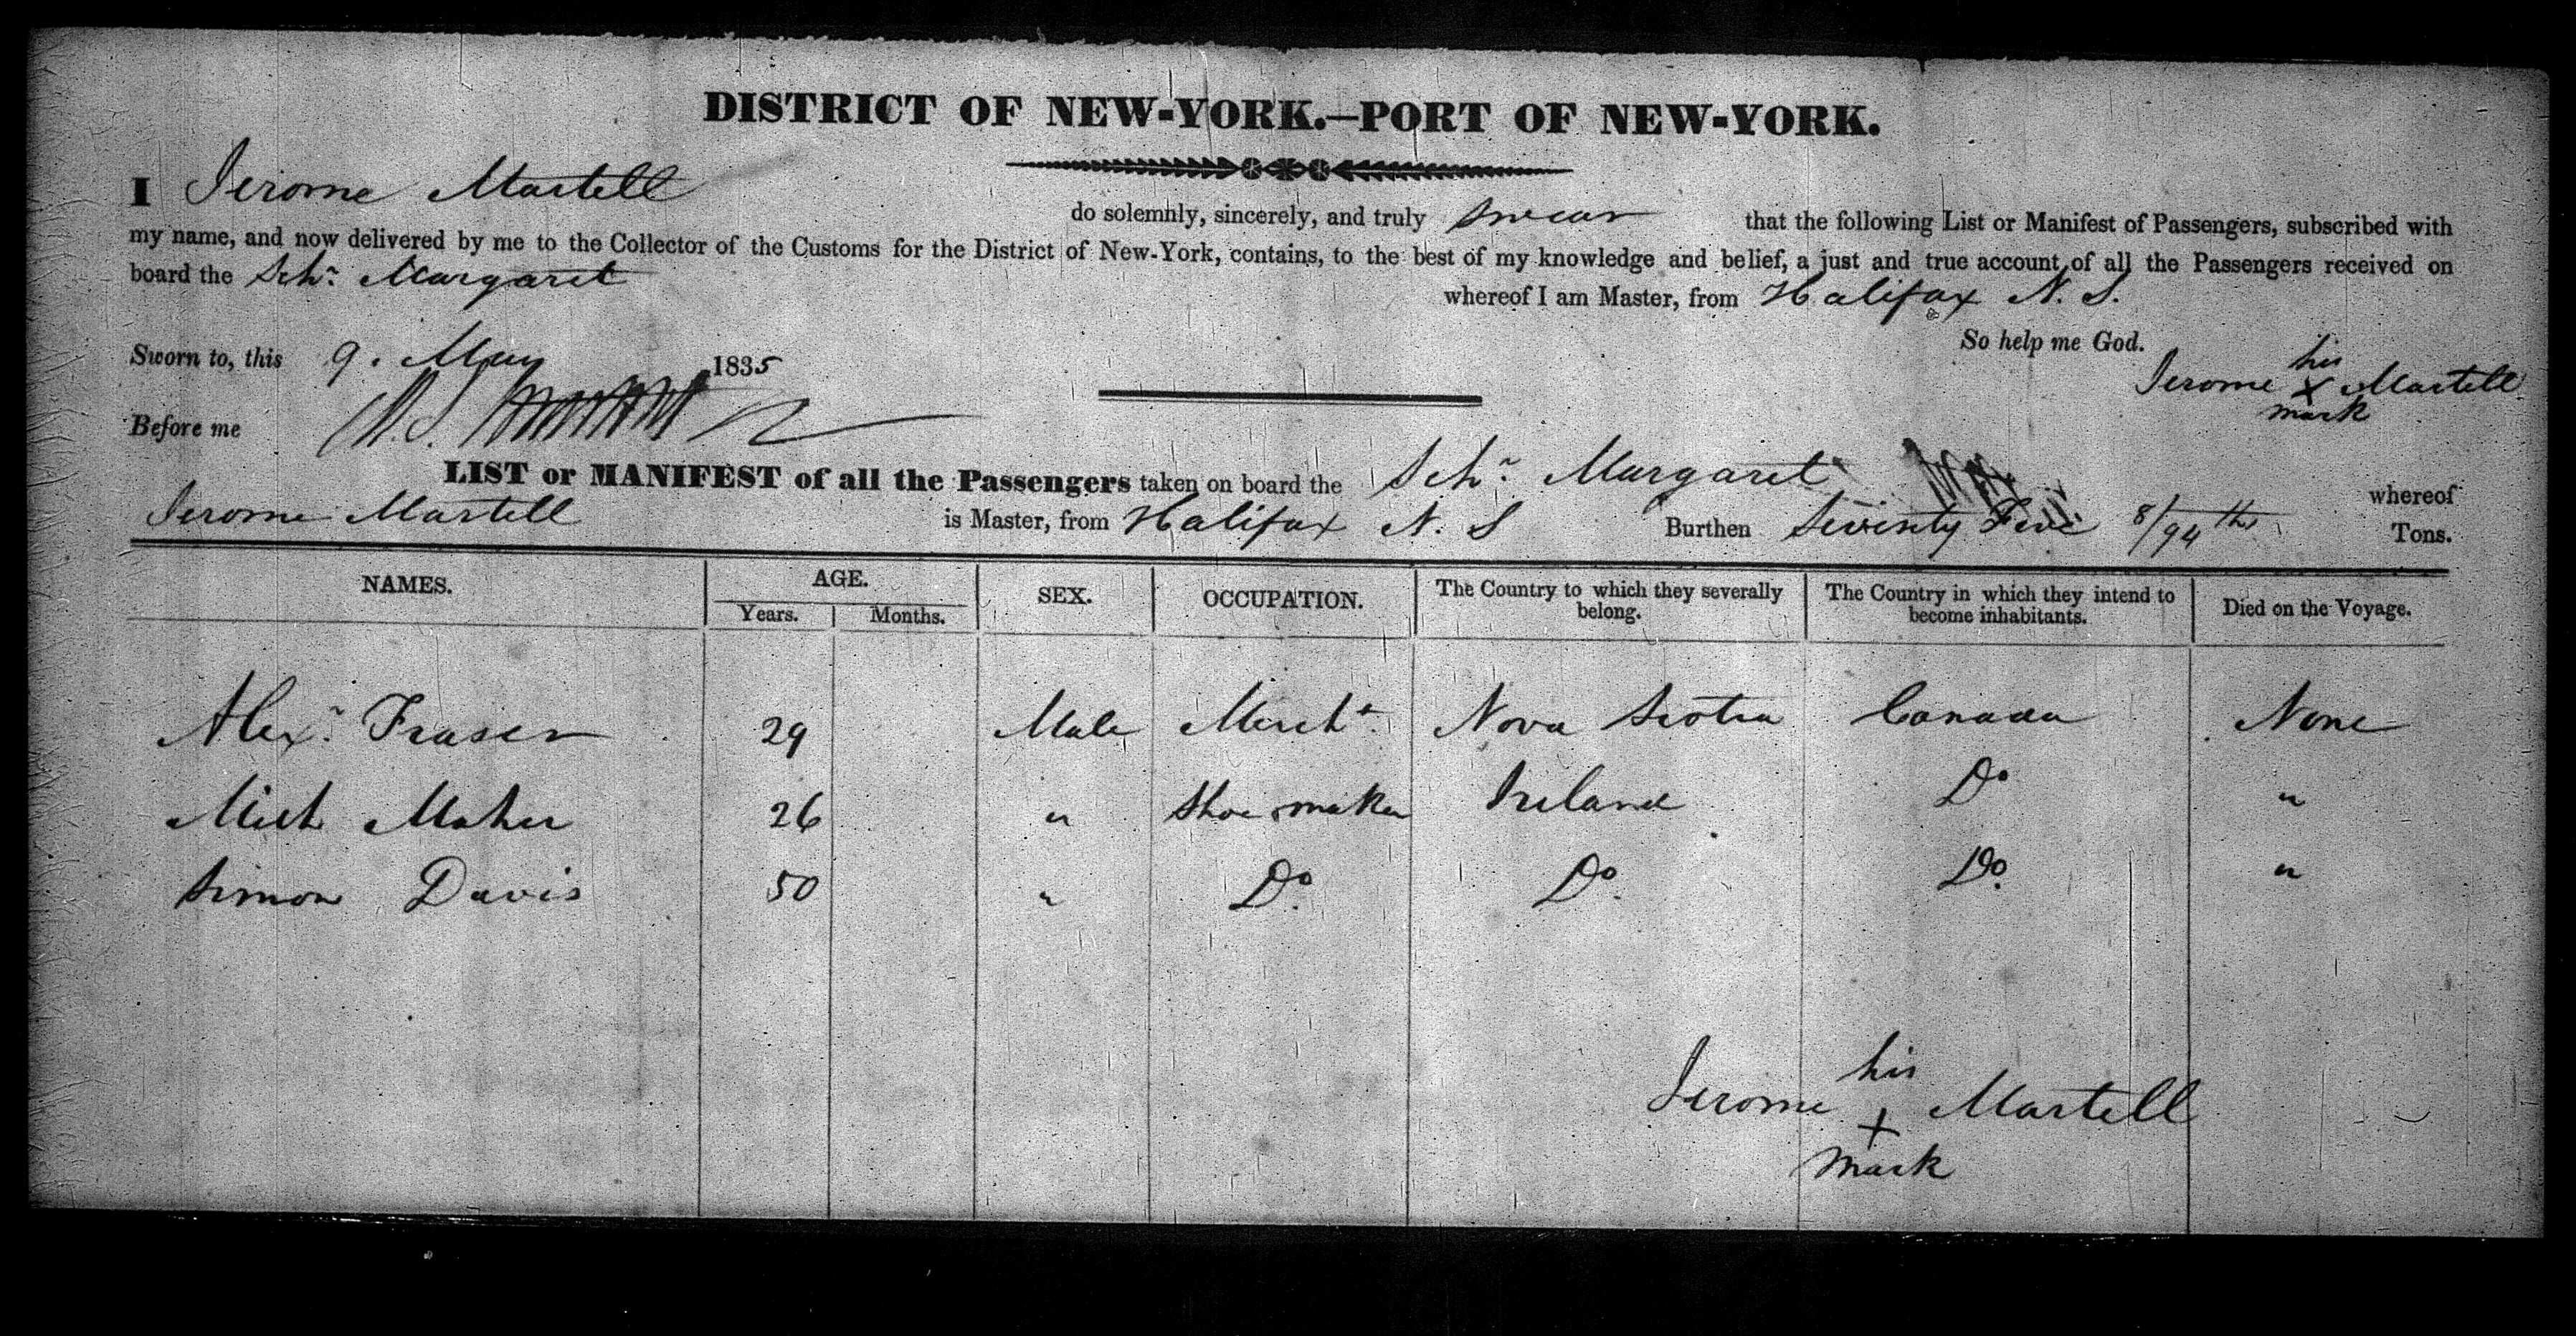 DISTRICT OF NEW-YORK.—PORT OF NEW-YORK.
I Jerome Martell do solemnly, sincerely, and truly swear that the following List or Manifest of Passengers, subscribed with
my name, and now delivered by me to the Collector of the Customs for the District of New-York, contains, to the best of my knowledge and belief, a just and true account of all the Passengers received on
board the Schr. Margaret whereof I am Master, from Halifax N. S.
So help me God.
Sworn to, this 9. May 1835
his
Jerome X Martell
mark
Before me
LIST or MANIFEST of all the Passengers taken on board the Schr. Margaret whereof
Jerome Martell is Master, from Halifax N. S Burthen Seventy Five 8/94ths Tons.
NAMES. AGE. SEX. OCCUPATION. The Country to which they severally belong. The Country in which they intend to become inhabitants. Died on the Voyage.
Years. Months.
Alexr. Fraser 29 Male Mercht. Nova Scotia Canada None
Mich Maher 26 " Shoe maker Ireland Do "
Simon Davis 50 " Do. Do. Do. "
his
Jerome + Martell
mark